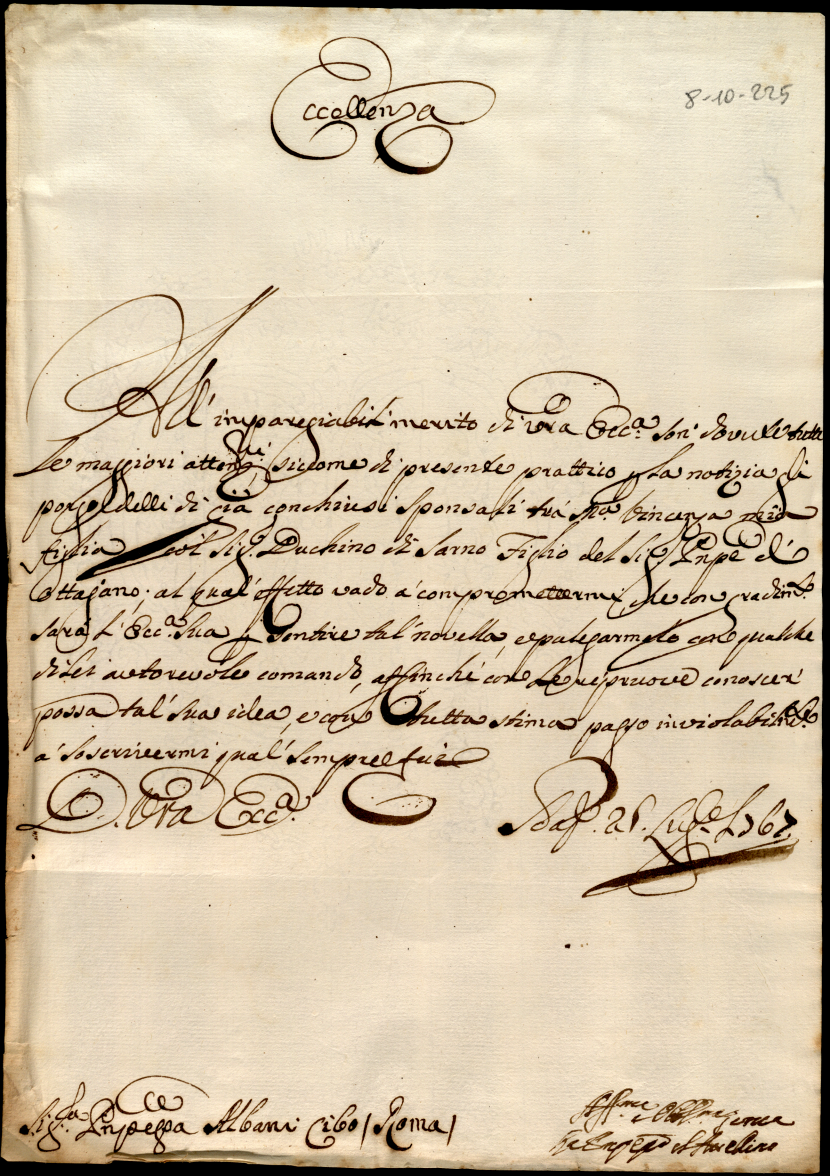 8-10-225
Eccellenza
All' impareggiabil' merito di Vra Ecc.a son' dovute tutte
le maggiori attenz.ni siccome di presente prattico la notizia di
porgedelli di già conchiusi sponsali trà Vincenza mia
figlia col Sig.r Duchino di Sarno Figlio del Sig.r Pnpe d'
Ottajano; al qual' effetto vado a compromettermi, che con gradim.to
sarà l' Ecc.a Sua p sentire tal' novella, e palesarmelo con qualche
di Lei autorevole comando, affinche con le repruove conoscer'
possa tal' sua idea, e con tutta stima passo inviolabilm.te
a' soscrivermi qual' sempre fui
D. Vra Ecc.a
Nap. 25 Lug.o 1767.
Sig.ra Pnpessa Albani Cibo / Roma /
Aff.ma e Obl.ma Serva
La Pnpessa d'Avellino